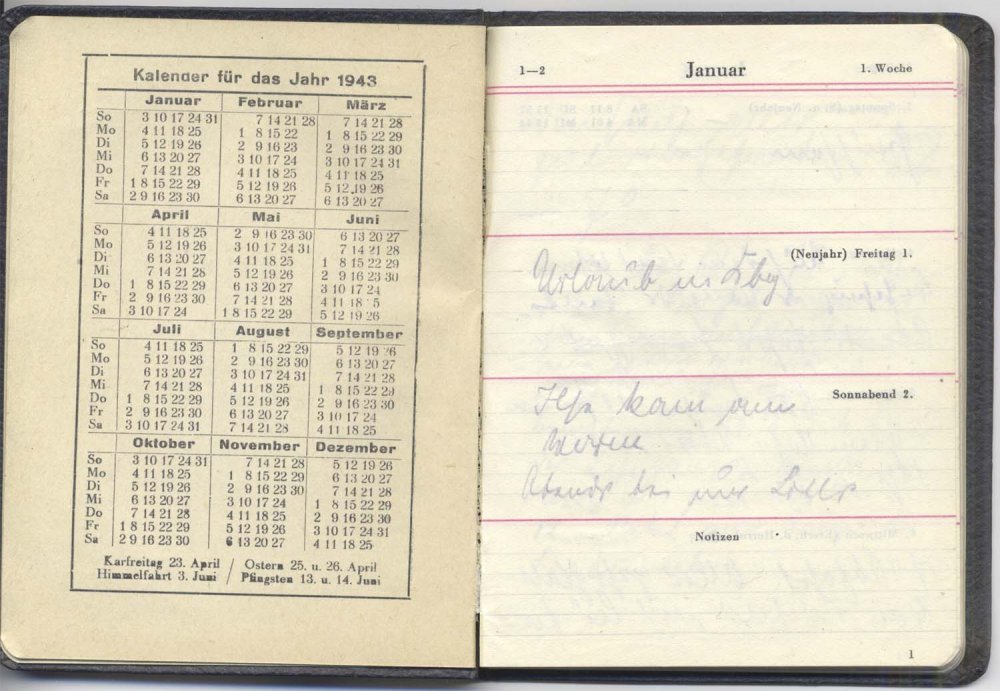 Kalender für das Jahr 1943
Januar Februar März
So 3 10 17 24 31 7 14 21 28 7 14 21 28
Mo 4 11 18 25 1 8 15 22 1 8 15 22 29
Di 5 12 19 26 2 9 16 23 2 9 16 23 30
Mi 6 13 20 27 3 10 17 24 3 10 17 24 31
Do 7 14 21 28 4 11 18 25 4 11 18 25
Fr 1 8 15 22 29 5 12 19 26 5 12 19 26
Sa 2 9 16 23 30 6 13 20 27 6 13 20 27
April Mai Juni
So 4 11 18 25 2 9 16 23 30 6 13 20 27
Mo 5 12 19 26 3 10 17 24 31 7 14 21 28
Di 6 13 20 27 4 11 18 25 1 8 15 22 29
Mi 7 14 21 28 5 12 19 26 2 9 16 23 30
Do 1 8 15 22 29 6 13 20 27 3 10 17 24
Fr 2 9 16 23 30 7 14 21 28 4 11 18 25
Sa 3 10 17 24 1 8 15 22 29 5 12 19 26
Juli August September
So 4 11 18 25 1 8 15 22 29 5 12 19 26
Mo 5 12 19 26 2 9 16 23 30 6 13 20 27
Di 6 13 20 27 3 10 17 24 31 7 14 21 28
Mi 7 14 21 28 4 11 18 25 1 8 15 22 29
Do 1 8 15 22 29 5 12 19 26 2 9 16 23 30
Fr 2 9 16 23 30 6 13 20 27 3 10 17 24
Sa 3 10 17 24 31 7 14 21 28 4 11 18 25
Oktober November Dezember
So 3 10 17 24 31 7 14 21 28 5 12 19 26
Mo 4 11 18 25 1 8 15 22 29 6 13 20 27
Di 5 12 19 26 2 9 16 23 30 7 14 21 28
Mi 6 13 20 27 3 10 17 24 1 8 15 22 29
Do 7 14 21 28 4 11 18 25 2 9 16 23 30
Fr 1 8 15 22 29 5 12 19 26 3 10 17 24 31
Sa 2 9 16 23 30 6 13 20 27 4 11 18 25
Karfreitag 23. April / Ostern 25. u. 26. April
Himmelfahrt 3. Juni / Pfingsten 13. u. 14. Juni
1—2 Januar 1. Woche
(Neujahr) Freitag 1.
Urlaub in
Sonnabend 2.
kam
Abends bei
Notizen
1